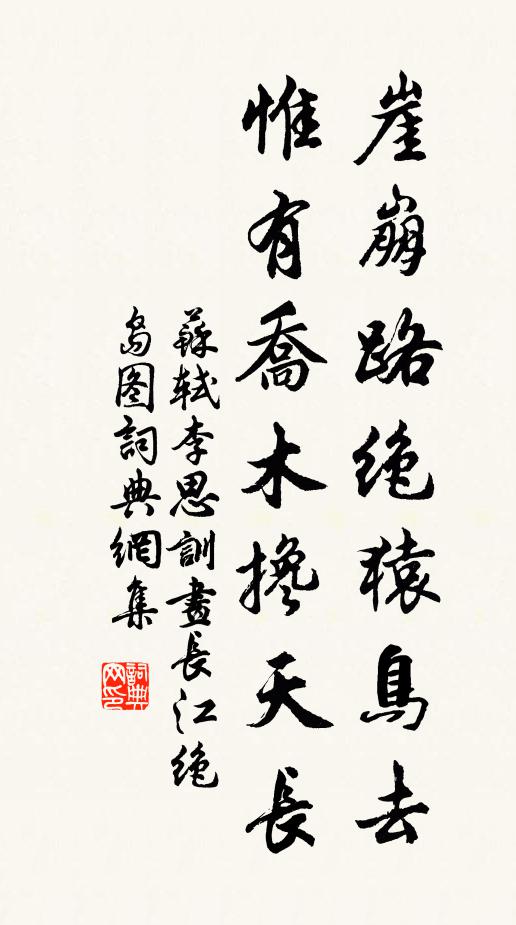 崖崩路绝猿鳥去
惟有喬木搀天長
蘇軾李思訓畫長江绝
島图詞典網集
詞典
网印